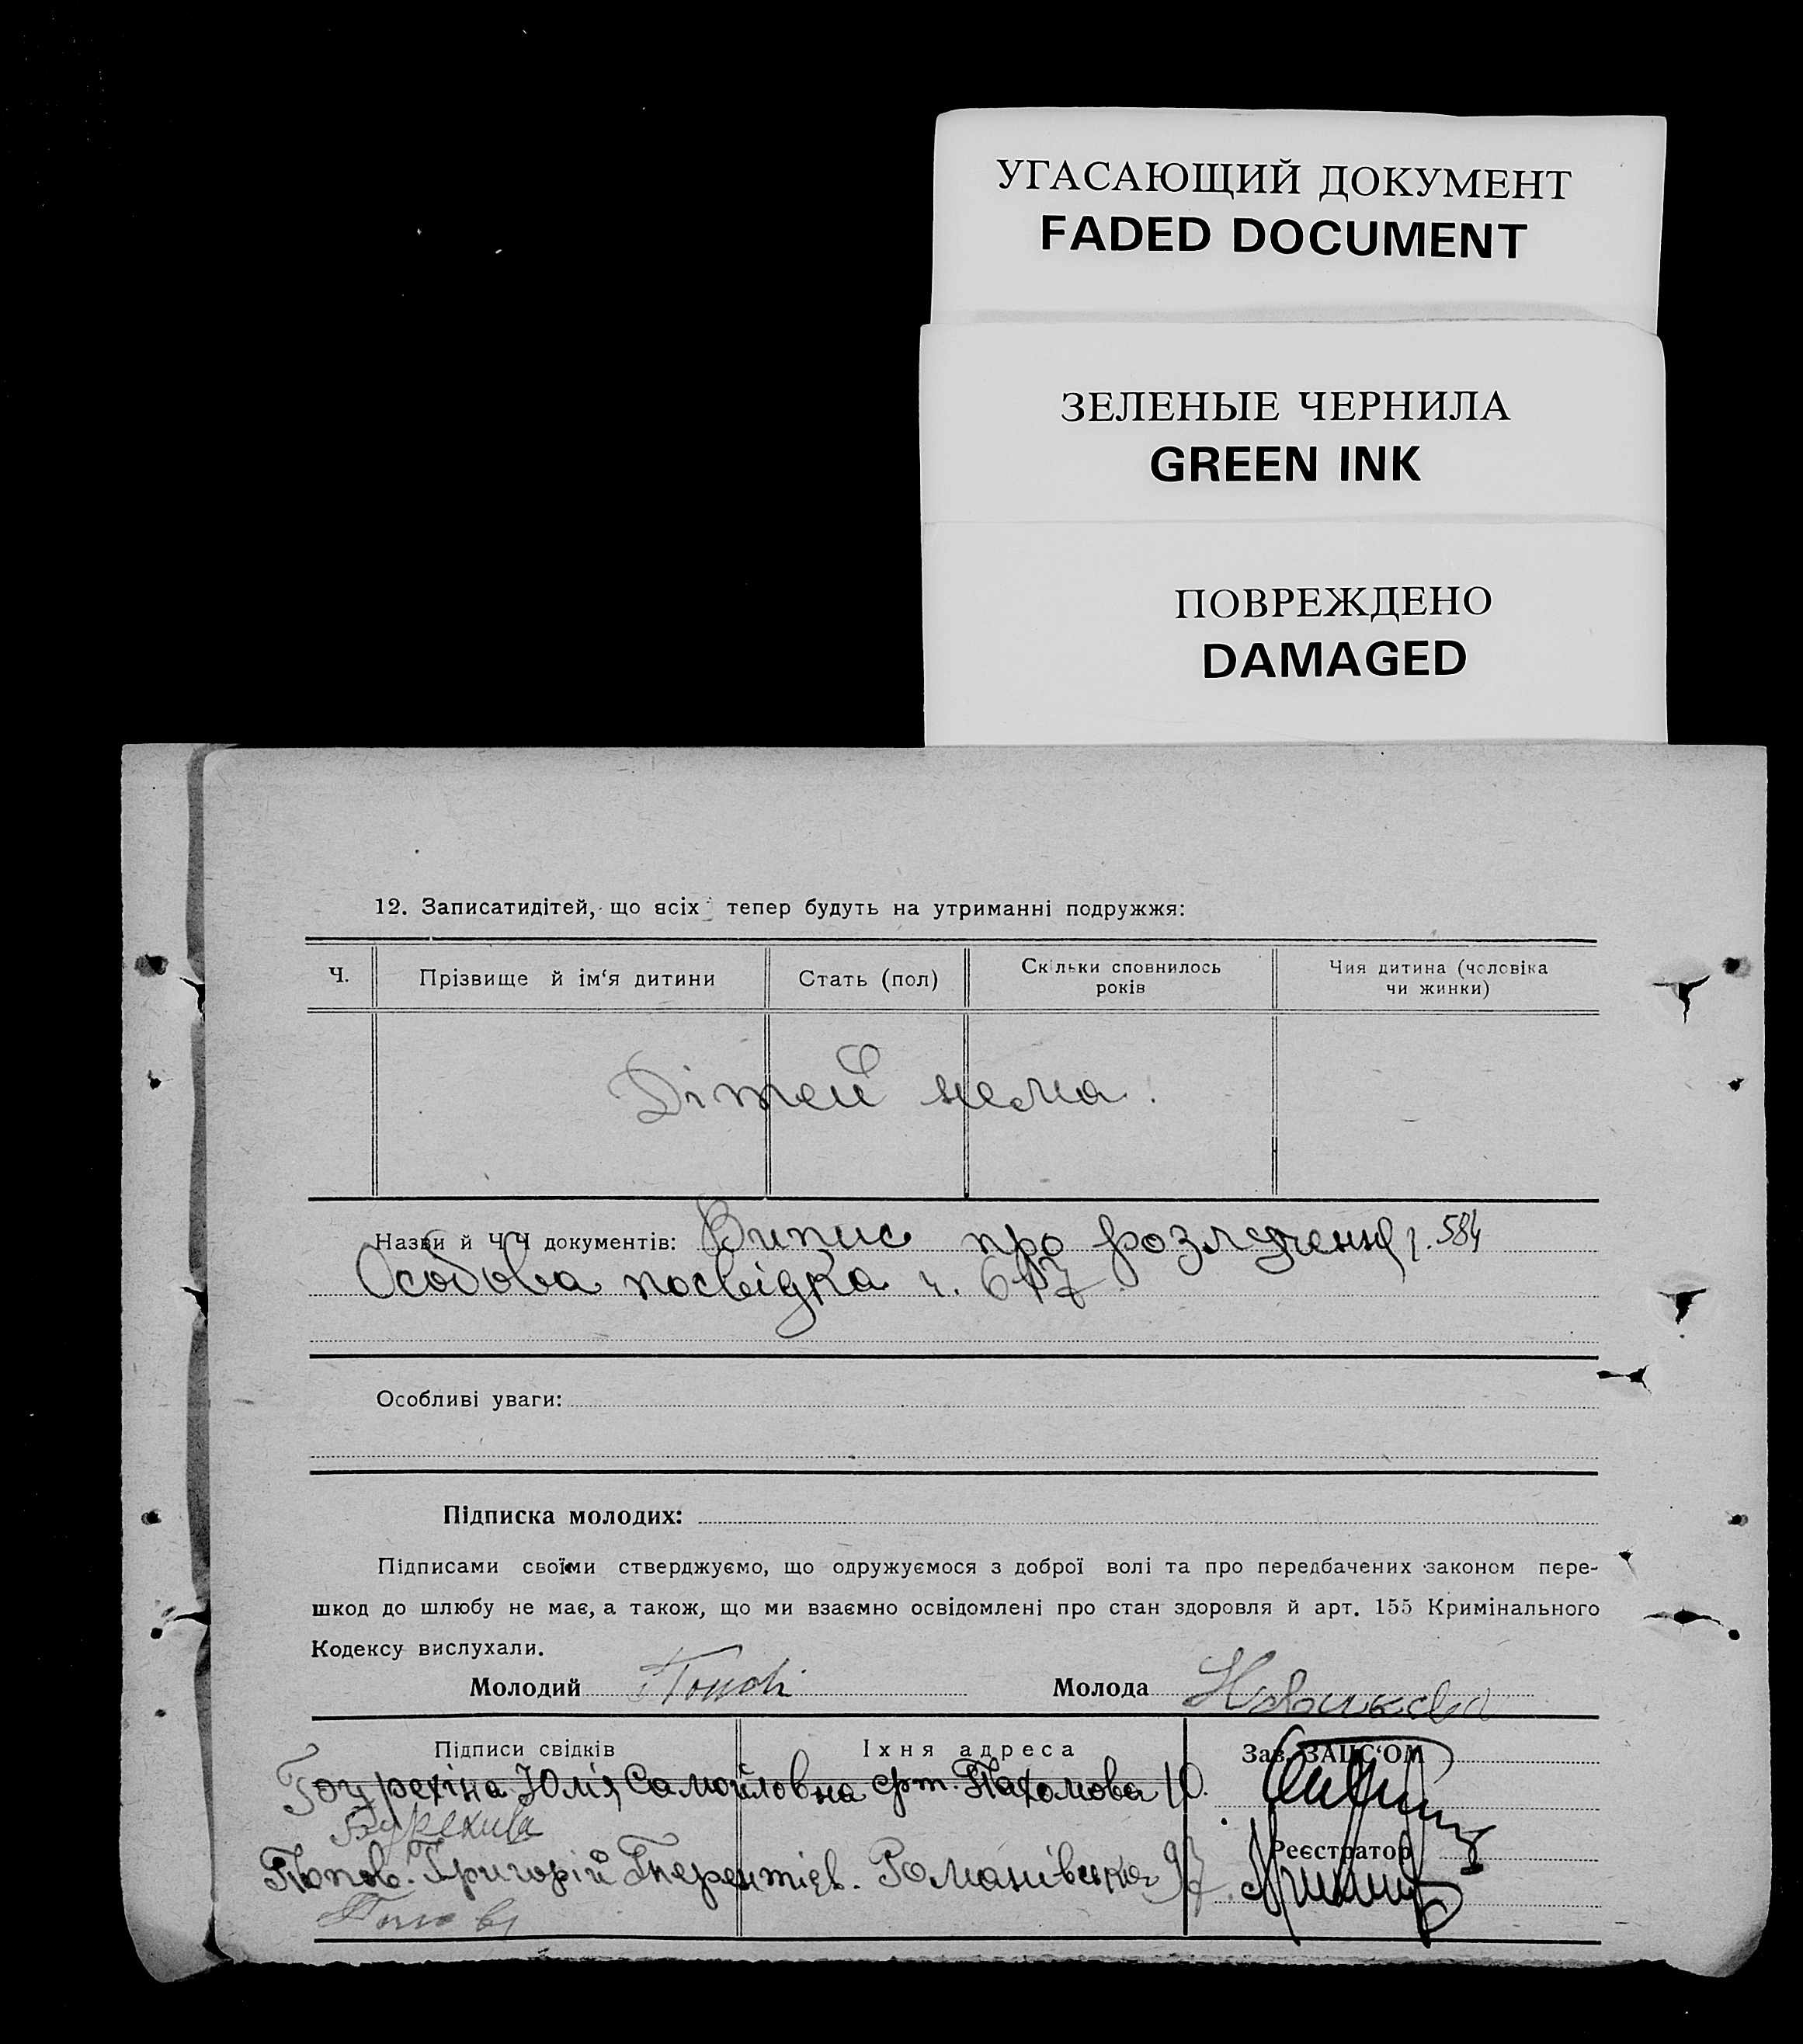 УГАСАЮЩИЙ ДОКУМЕНТ
FADED DOCUMENT
ЗЕЛЕНЫЕ ЧЕРНИЛА
GREEN INK
ПОВРЕЖДЕНО
DAMAGED
12. Записатидітей, що всіх тепер будуть на утриманні подружжя:
Ч. Прізвище й ім‘я дитини Стать (пол) Скільки сповнилось років Чия дитина (чоловіка чи жинки)
Дітей нема.
Назви й Ч Ч документів: Випис про розлучення ч. 584
Особова посвідка ч. 617
Особливі уваги:
Підписка молодих:
Підписами своїми стверджуємо, що одружуємося з доброї волі та про передбачених законом пере-
шкод до шлюбу не має, а також, що ми взаємно освідомлені про стан здоровля й арт. 155 Кримінального
Кодексу вислухали.
Молодий Попов Молода Новикова
Підписи свідків Їхня адреса Зав. ЗАГС‘ОМ
Юлія Самойловна Пахомова 10.
Реєстратор
Попов Григорій Терентієв. Романівська 97
Попов